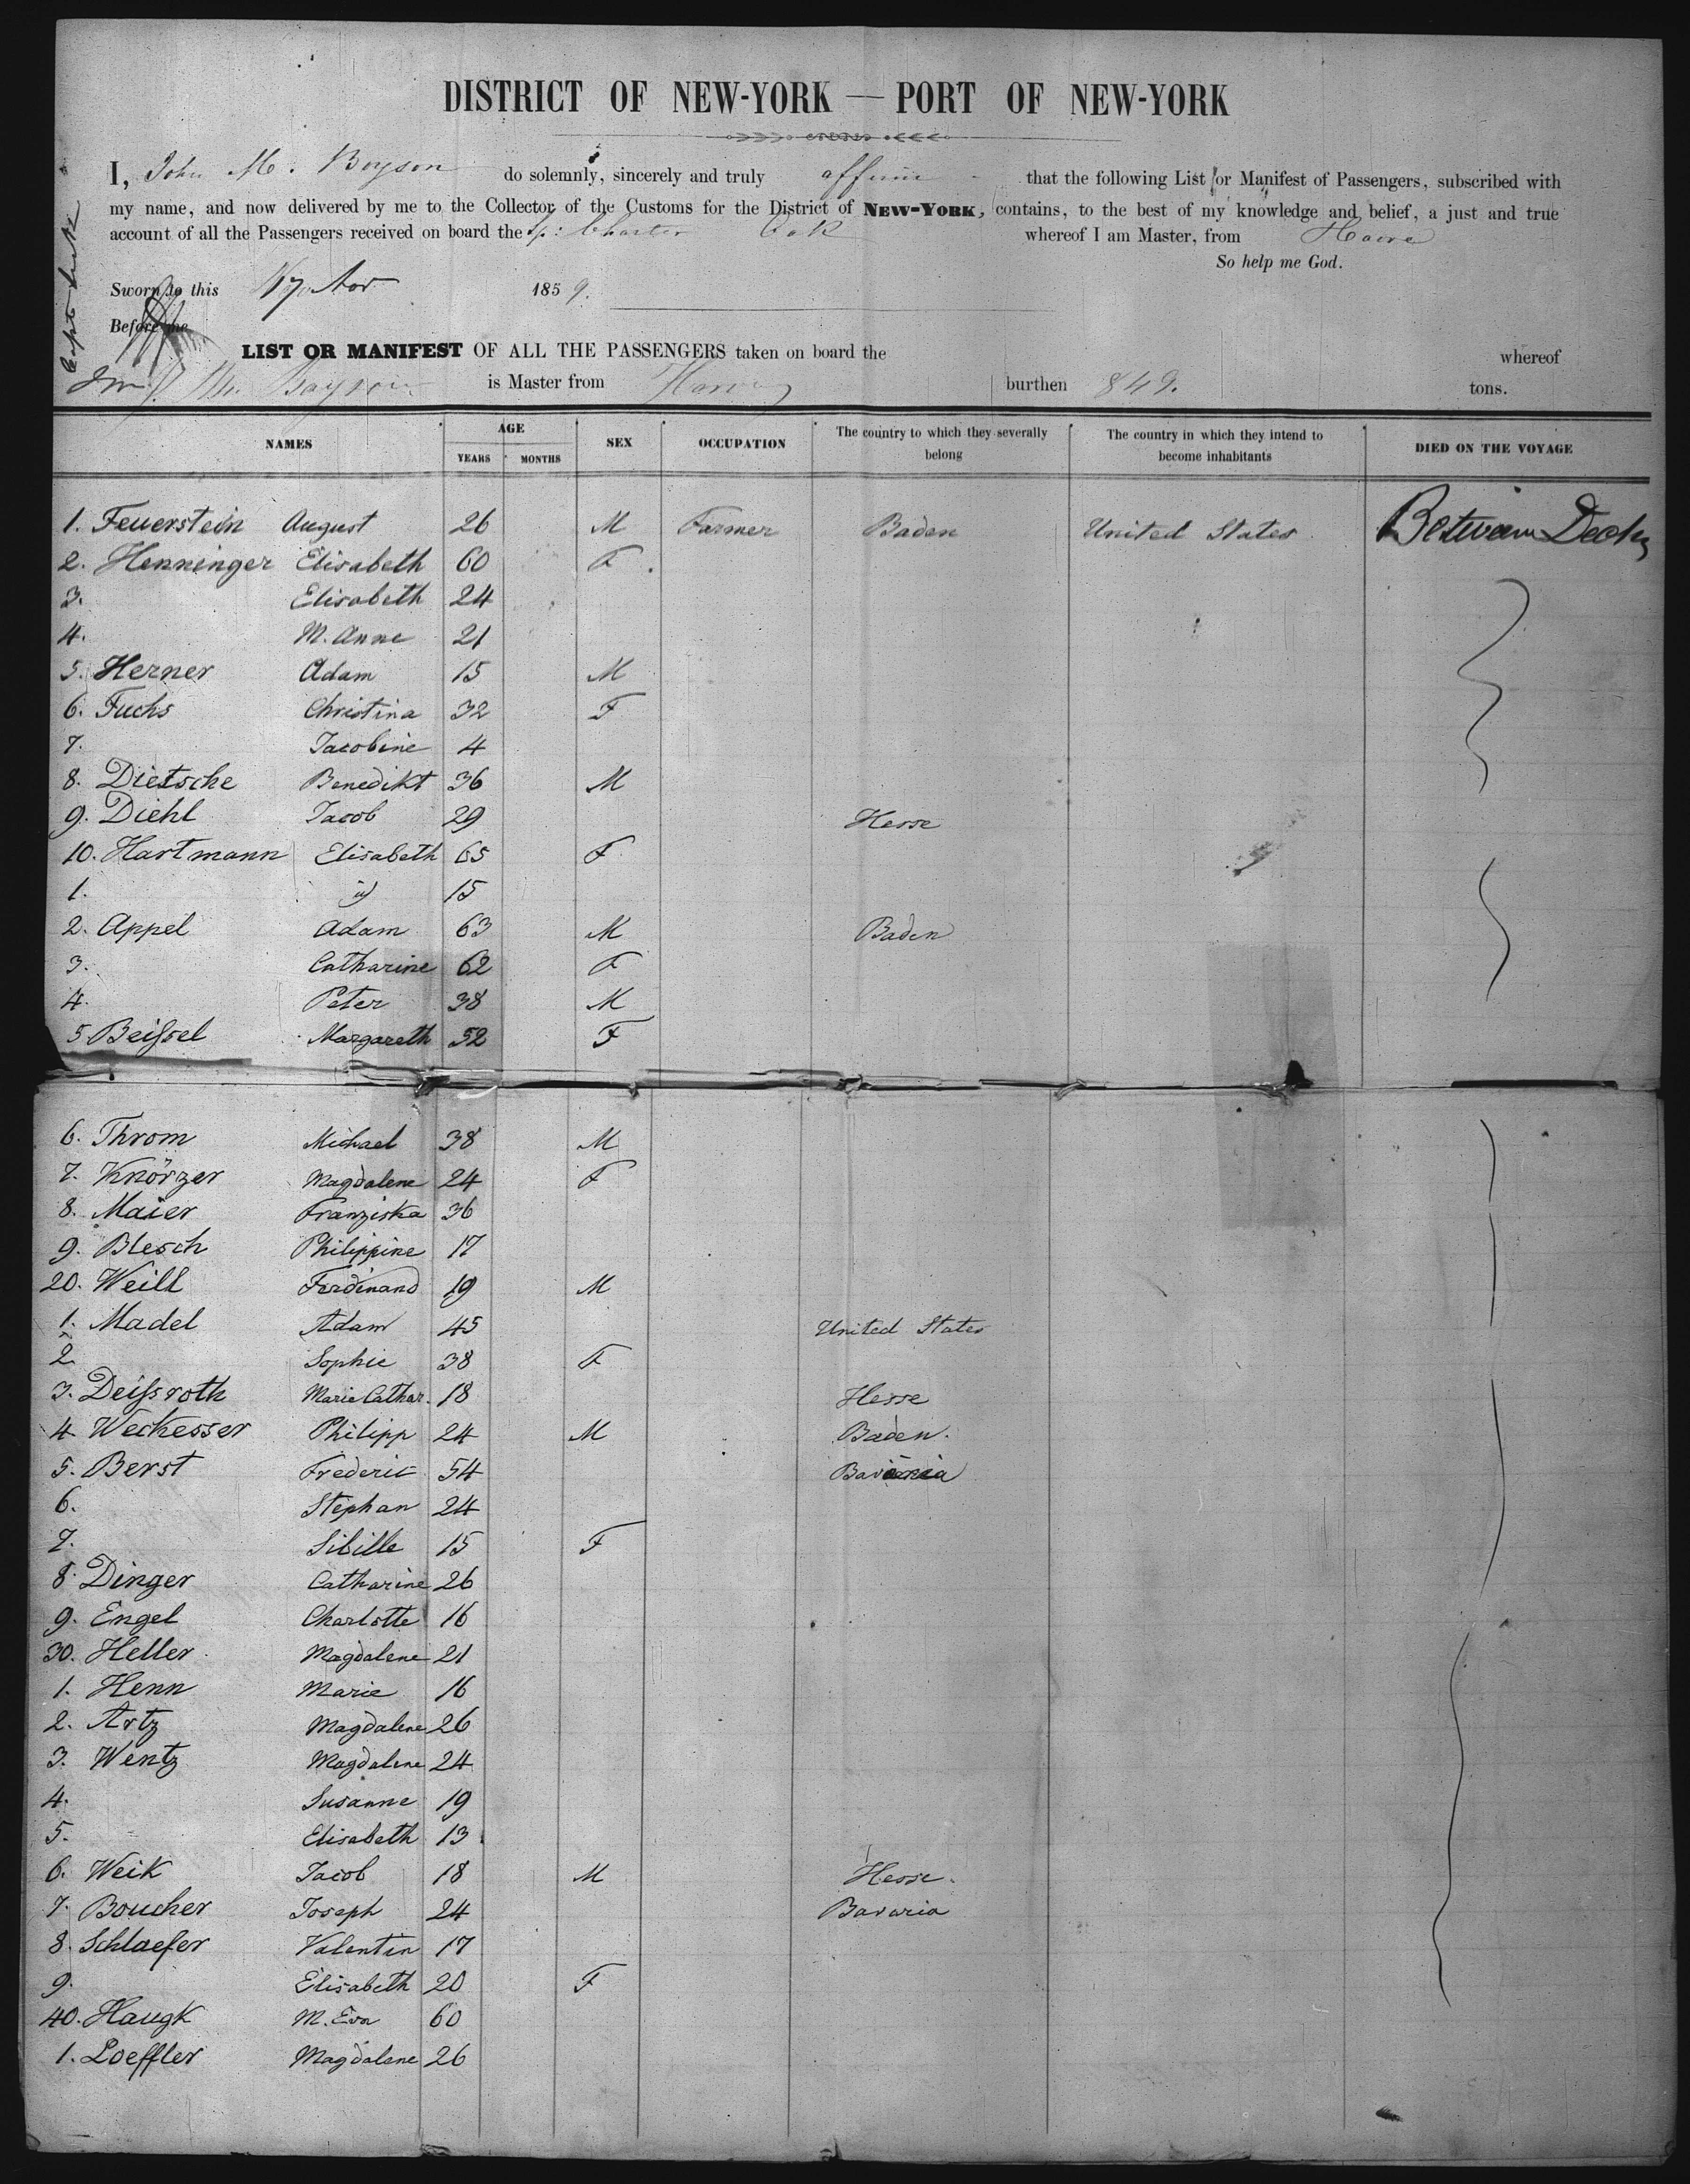 DISTRICT OF NEW-YORK — PORT OF NEW-YORK
I, John M. Boyson do solemnly, sincerely and truly affirm that the following List or Manifest of Passengers, subscribed with
my name, and now delivered by me to the Collector of the Customs for the District of NEW-YORK, contains, to the best of my knowledge and belief, a just and true
account of all the Passengers received on board the Sp: Charter Oak whereof I am Master, from Havre
So help me God.
Sworn to this 17 Nov 1859.
Before me
LIST OR MANIFEST OF ALL THE PASSENGERS taken on board the whereof
is Master from burthen 849. tons.
NAMES AGE YEARS MONTHS SEX OCCUPATION The country to which they severally belong The country in which they intend to become inhabitants DIED ON THE VOYAGE
1. Feuerstein August 26 M Farmer Baden United States Between Decks
2. Henninger Elisabeth 60 F
3. Elisabeth 24
4. M. Anne 21
5. Herner Adam 15 M
6. Fuchs Christina 32 F
7. Jacobine 4
8. Dietsche Benedikt 36 M
9. Diehl Jacob 29 Hesse
10. Hartmann Elisabeth 65 F
1. id 15
2. Appel Adam 63 M Baden
3. Catharine 62 F
4. Peter 38 M
5. Beißel Margareth 52 F
6. Throm Michael 38 M
7. Knörzer Magdalene 24 F
8. Maier Franziska 36
9. Blesch Philippine 17
20. Weill Ferdinand 19 M
1. Madel Adam 45 United States
2 Sophie 38 F
3. Deißroth Marie Cathar. 18 Hesse
4. Weckesser Philipp 24 M Baden.
5. Berst Frederic 54 Bavaria
6. Stephan 24
7. Sibille 15 F
8. Dinger Catharine 26
9. Engel Charlotte 16
30. Heller Magdalene 21
1. Henn Marie 16
2. Artz Magdalene 26
3. Wentz Magdalene 24
4. Susanne 19
5. Elisabeth 13
6. Weik Jacob 18 M Hesse.
7. Boucher Joseph 24 Bavaria
8. Schlaefer Valentin 17
9. Elisabeth 20 F
40. Haugk M. Eva 60
1. Loeffler Magdalene 26